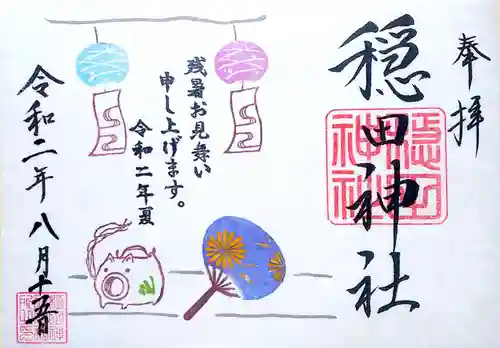 奉拝
穏田神社
穏田
神社
残暑お見舞い
申し上げます。
令和二年夏
令和二年八月十五日